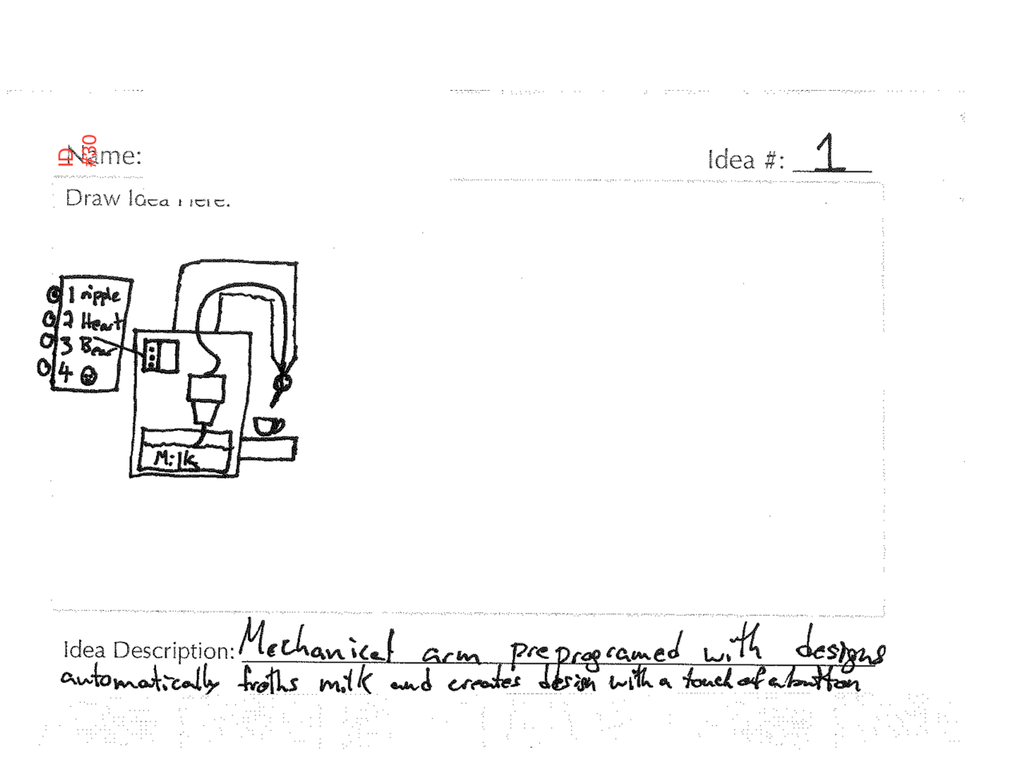 ID
#30
Name:
Idea #: 1
Draw Idea Here:
1 ripple
2 Heart
3 Bear
4
Milk
Idea Description: Mechanical arm preprogramed with designs
automatically froths milk and creates design with a touch of a button